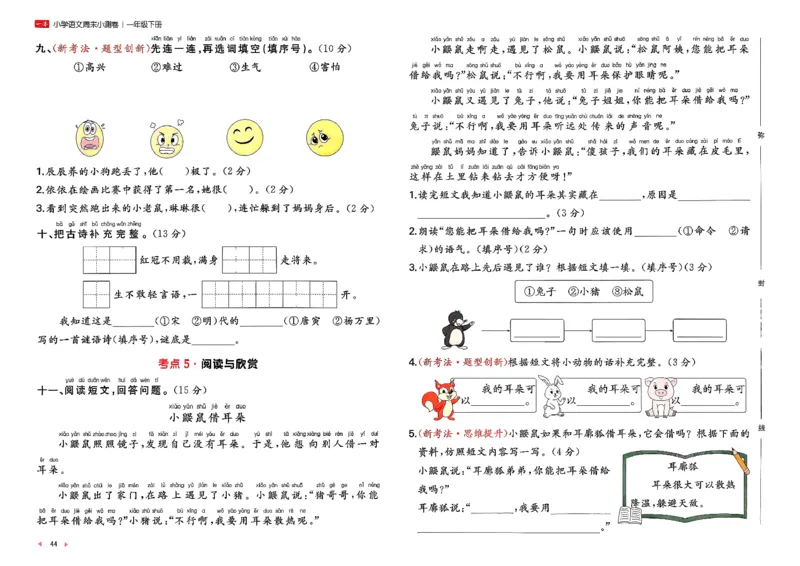 一本 小学语文周末小测卷 | 一年级下册
九、(新考法·题型创新)先连一连,再选词填空(填序号)。(10分)
①高兴 ②难过 ③生气 ④害怕
1.辰辰养的小狗跑丢了,他( )极了。(2分)
2.依依在绘画比赛中获得了第一名,她很( )。(2分)
3.看到突然跑出来的小老鼠,琳琳很( ),连忙躲到了妈妈身后。(2分)
十、把古诗补充完整。(13分)
红冠不用裁,满身 走将来。
生不敢轻言语,一 开。
我知道这是 (①宋 ②明)代的 (①唐寅 ②杨万里)
写的一首谜语诗(填序号),谜底是 。
考点5·阅读与欣赏
十一、阅读短文,回答问题。(15分)
小鼹鼠借耳朵
小鼹鼠照照镜子,发现自己没有耳朵。于是,他想向别人借一对
耳朵。
小鼹鼠出了家门,在路上遇见了小猪。小鼹鼠说:“猪哥哥,你能
把耳朵借给我吗?”小猪说:“不行啊,我要用耳朵散热呢。”
44
小鼹鼠走啊走,遇见了松鼠。小鼹鼠说:“松鼠阿姨,您能把耳朵
借给我吗?”松鼠说:“不行啊,我要用耳朵保护眼睛呢。”
小鼹鼠又遇见了兔子,他说:“兔子姐姐,你能把耳朵借给我吗?”
兔子说:“不行啊,我要用耳朵听远处传来的声音呢。”
鼹鼠妈妈知道了,告诉小鼹鼠:“傻孩子,我们的耳朵藏在皮毛里,
这样在土里钻来钻去才方便呀!”
1.读完短文我知道小鼹鼠的耳朵其实藏在 ,原因是
。(3分)
2.朗读“您能把耳朵借给我吗?”一句时应该使用 (①命令 ②请
求)的语气。(填序号)(2分)
3.小鼹鼠在路上先后遇见了谁?根据短文填一填。(填序号)(3分)
①兔子 ②小猪 ③松鼠
4.(新考法·题型创新)根据短文将小动物的话补充完整。(3分)
我的耳朵可以 。
我的耳朵可以 。
我的耳朵可以 。
5.(新考法·思维提升)小鼹鼠如果和耳廓狐借耳朵,它会借吗?根据下面的
资料,仿照短文内容写一写。(4分)
小鼹鼠说:“耳廓狐弟弟,你能把耳朵借给
我吗?”
耳廓狐说:“ ,我要用
。”
耳廓狐
耳朵很大可以散热
降温,躲避天敌。
弥
封
线